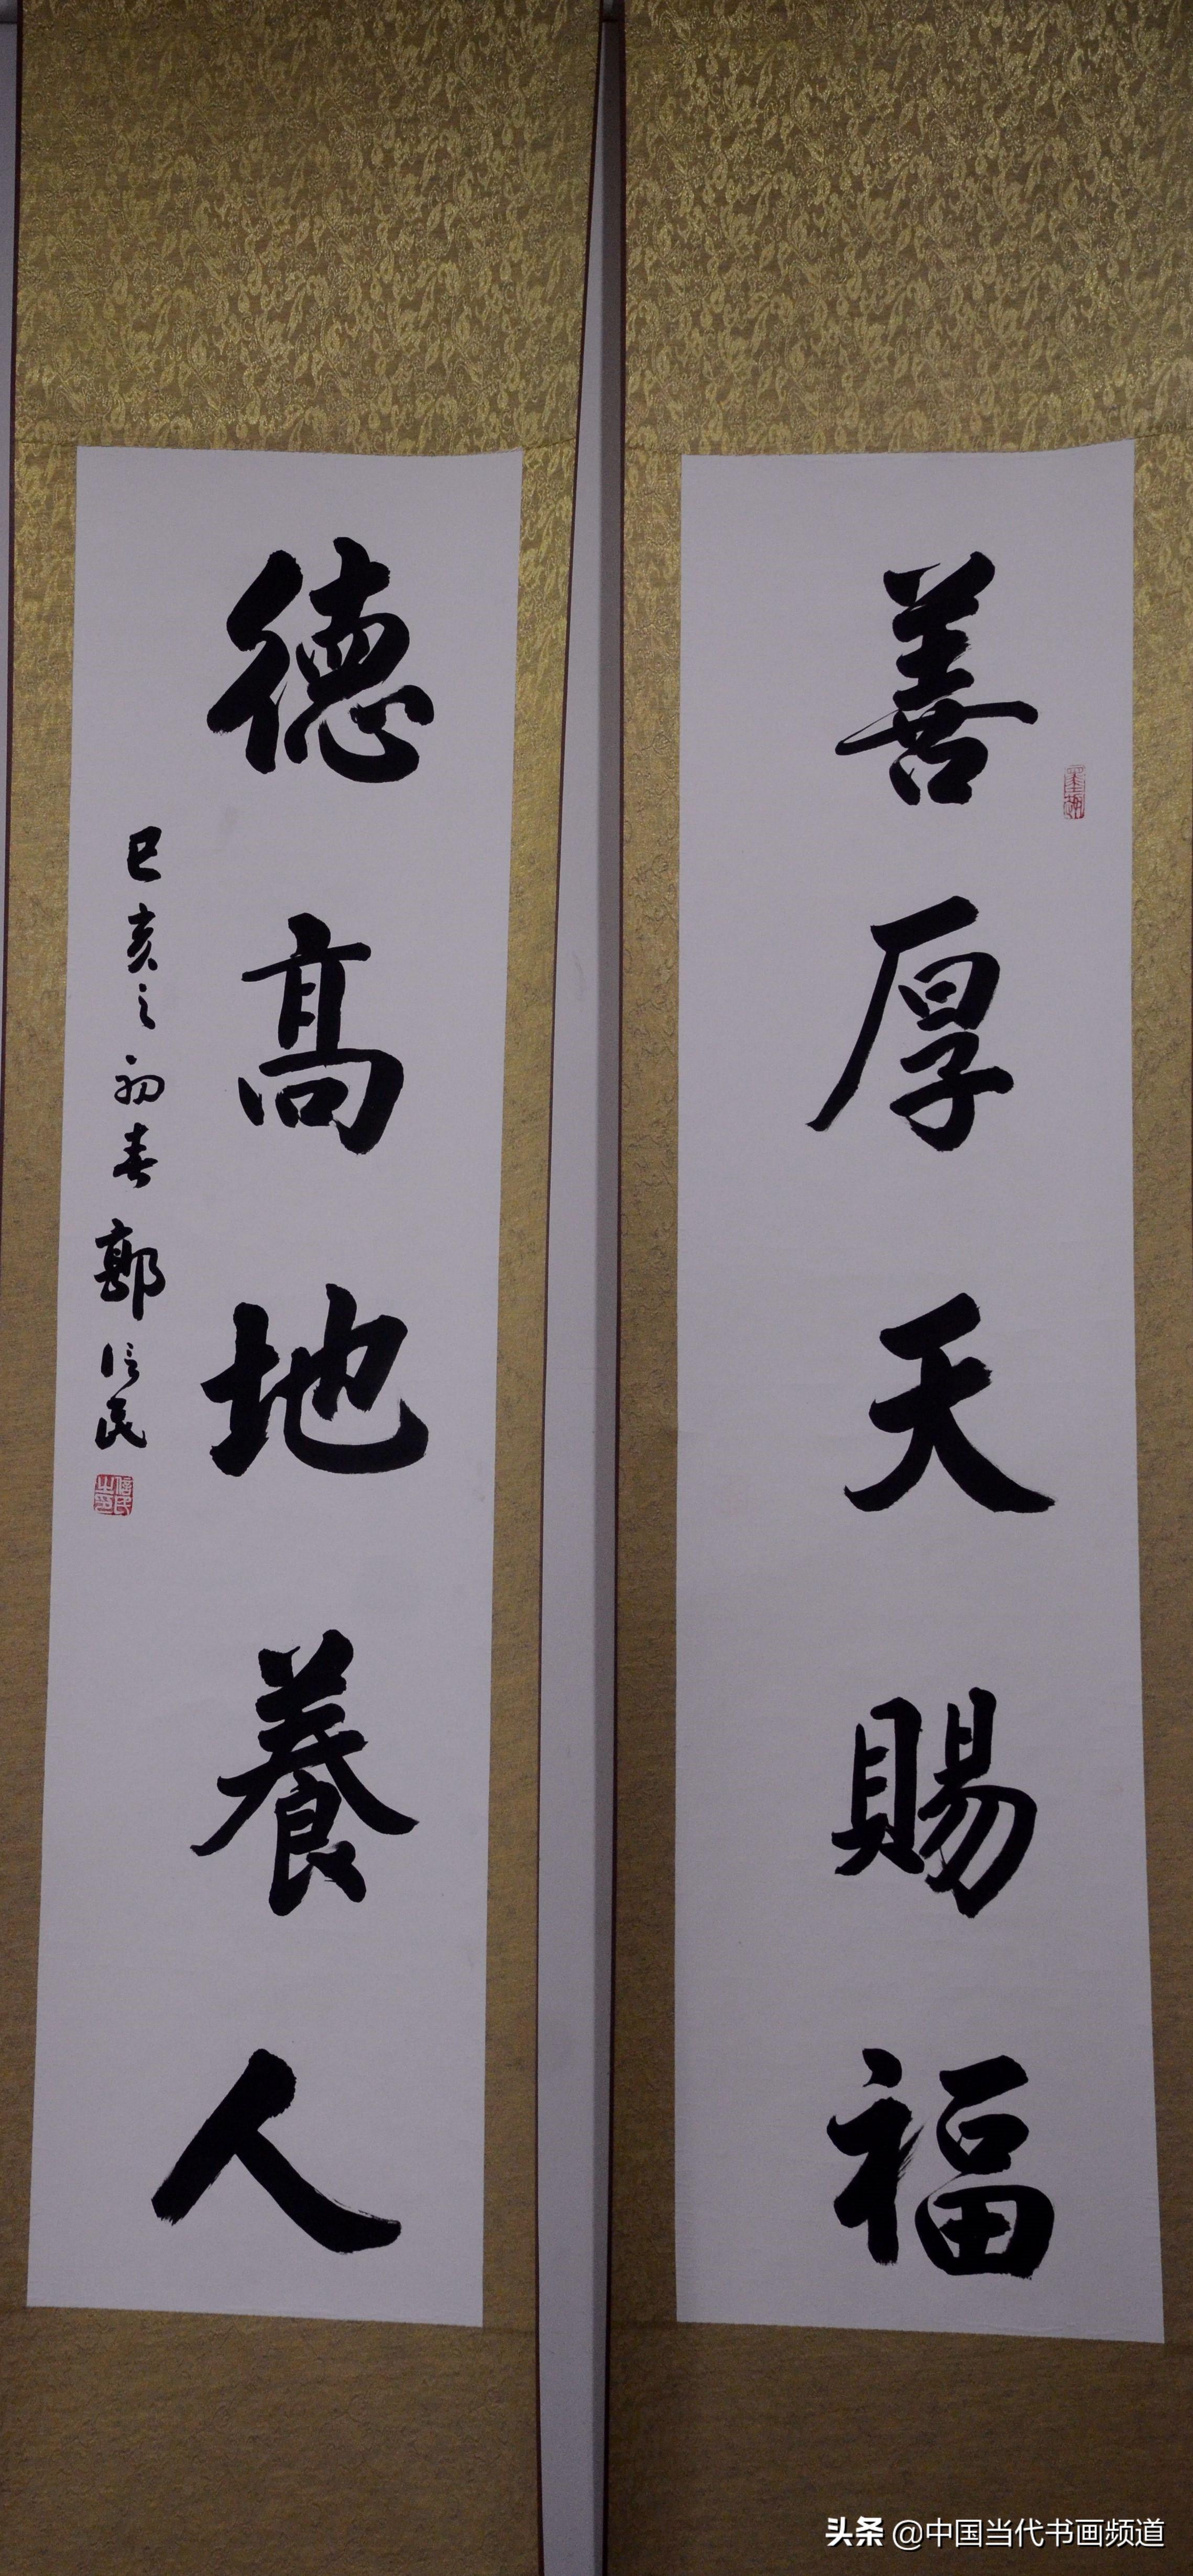 善厚天賜福
德高地養人
己亥之初春 郭信民
信民之印
头条 @中国当代书画频道